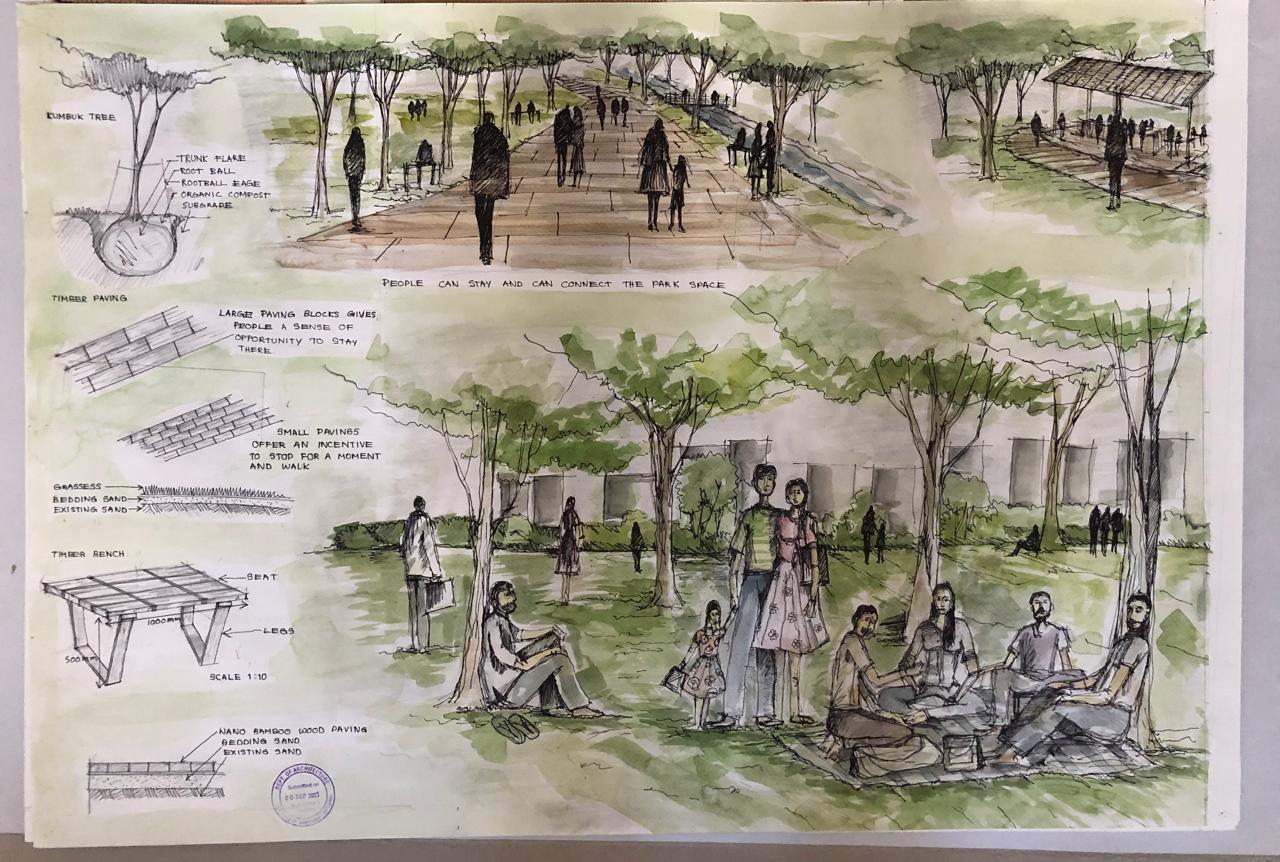 KUMBUK TREE
TRUNK FLARE
ROOT BALL
ROOTBALL EAGE
ORGANIC COMPOST
SUBGRADE
PEOPLE CAN STAY AND CAN CONNECT THE PARK SPACE
TIMBER PAVING
LARGE PAVING BLOCKS GIVES
PEOPLE A SENSE OF
OPPORTUNITY TO STAY
THERE.
SMALL PAVINGS
OFFER AN INCENTIVE
TO STOP FOR A MOMENT
AND WALK
GRASSESS
BEDDING SAND
EXISTING SAND
TIMBER BENCH
SEAT
1000MM
LEGS
500MM
SCALE 1:10
NANO BAMBOO WOOD PAVING
BEDDING SAND
EXISTING SAND
DEPT. OF ARCHITECTURE
Submitted on
SEP 2023